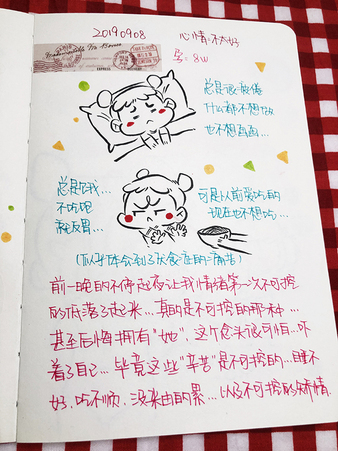 20190908
心情:不太好
孕:8w
EXPRESS
总是很疲倦
什么都不想做
也不想画画...
总是饿...
不吃呢
就反胃...
可是从前爱吃的
现在也不想吃...
(似乎体会到了厌食症的痛苦)
前一晚的不停起夜让我情绪第一次不可控
的低落了起来...真的是不可控的那种...
甚至后悔拥有“她”,这个念头很可怕...吓
着了自己...毕竟这些“辛苦”是不可控的...睡不
好.吃不顺.没来由的累...以及不可控的矫情.